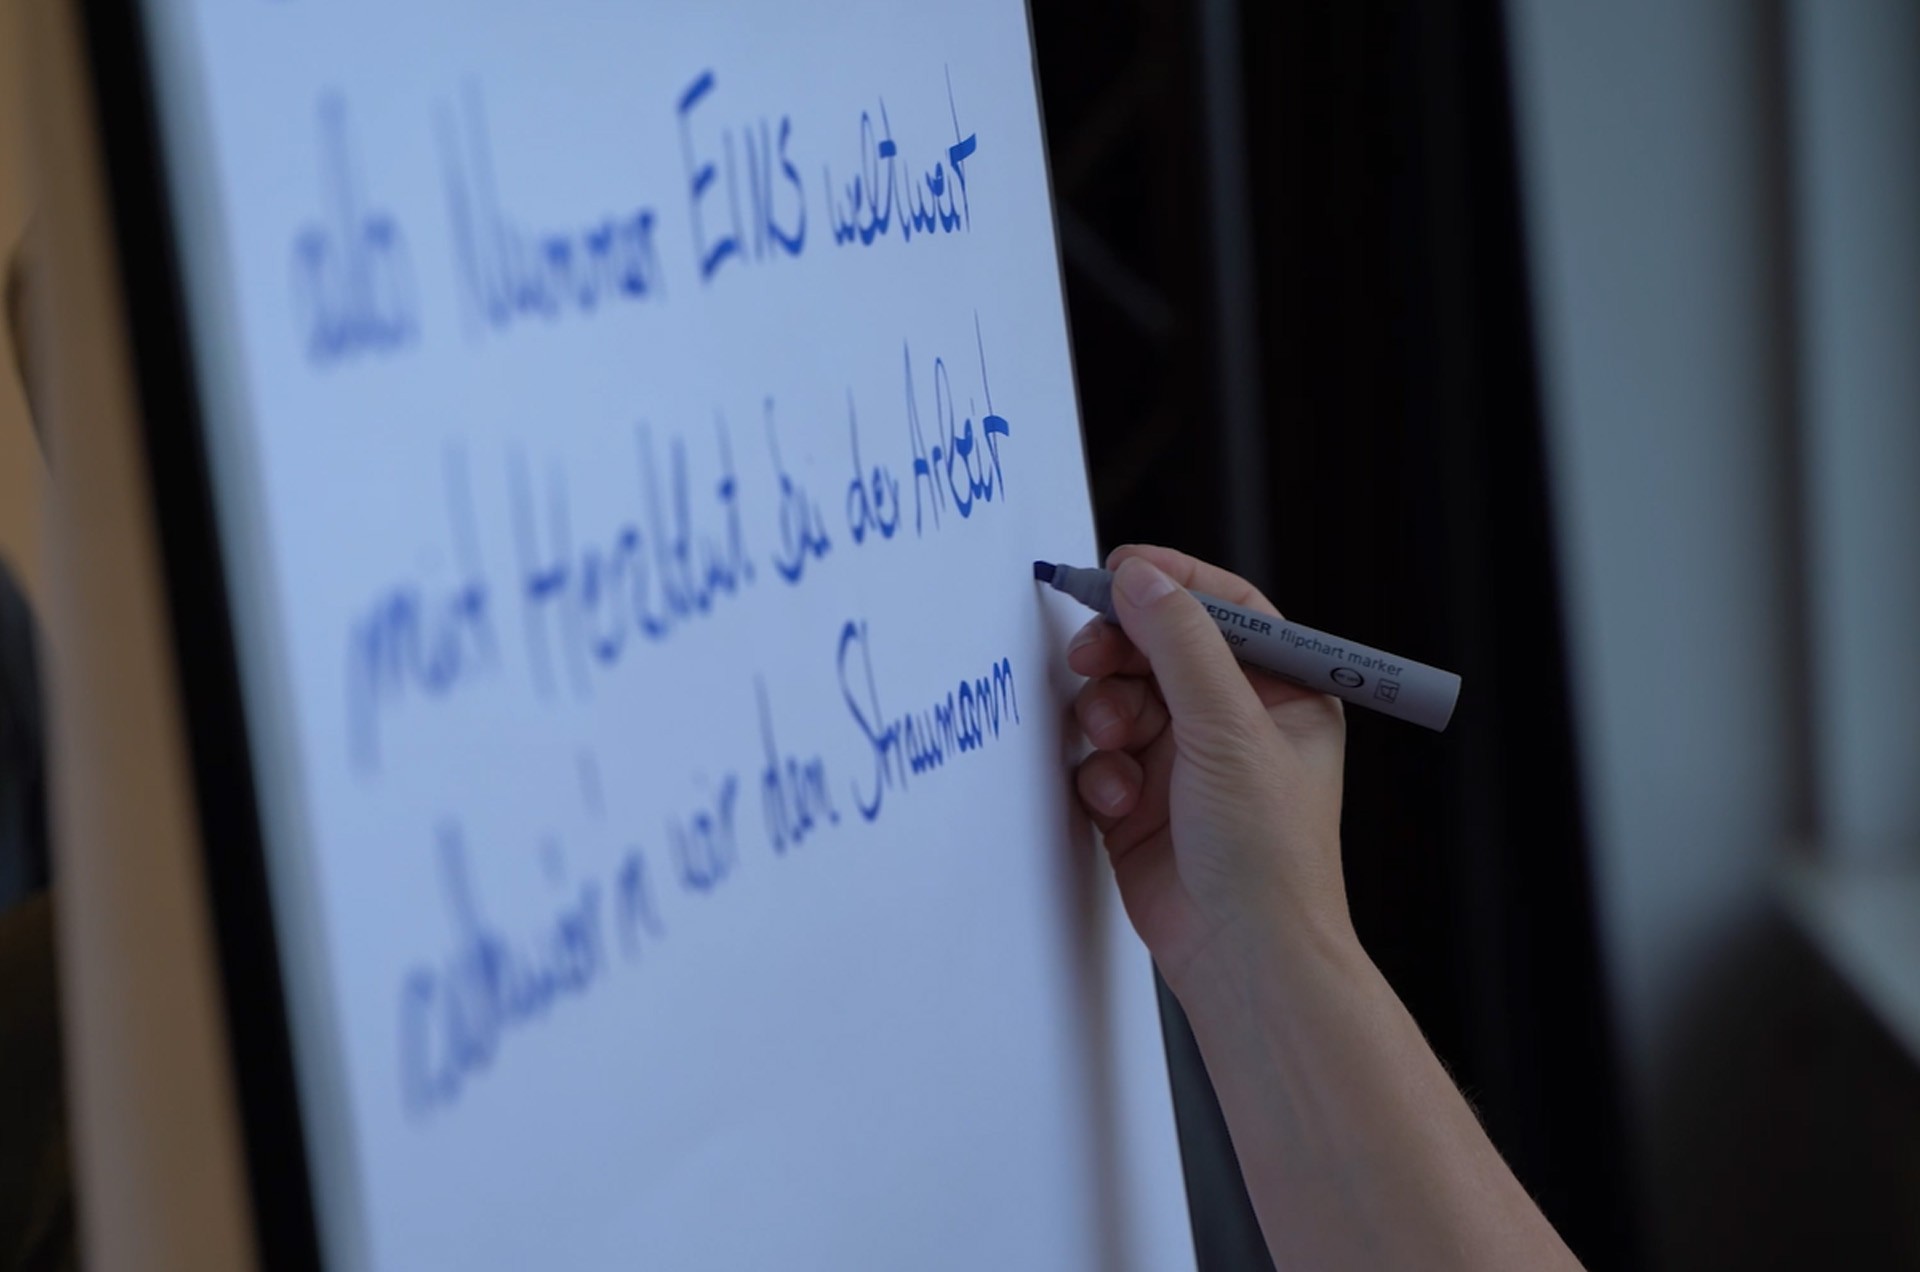 als Nummer EINS weltweit
mit Herzblut bei der Arbeit
wir den Straumann
STAEDTLER flipchart marker